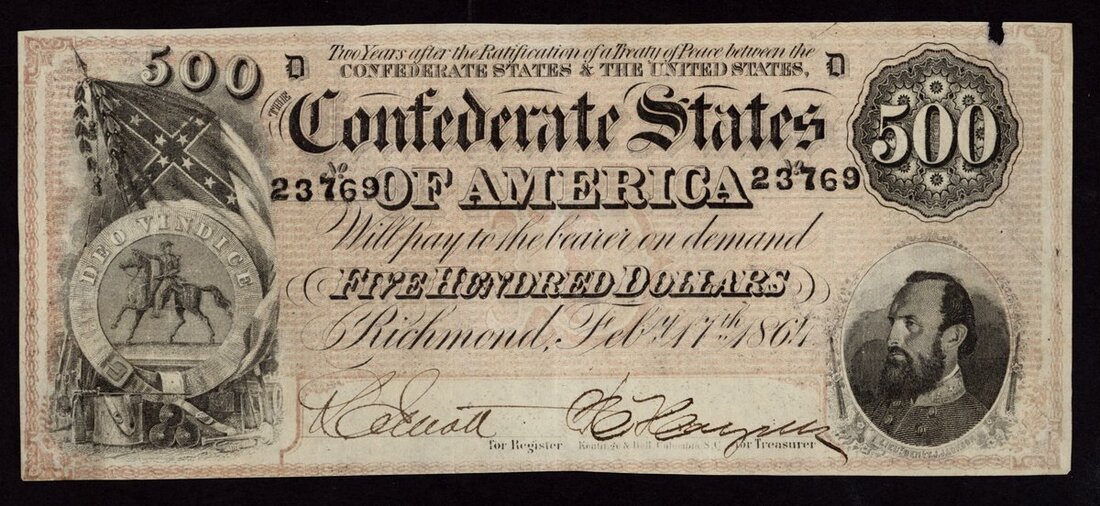 500
D
Two Years after the Ratification of a Treaty of Peace between the
CONFEDERATE STATES & THE UNITED STATES,
D
500
THE
Confederate States
No
23769
OF AMERICA
No
23769
DEO VINDICE
Will pay to the bearer on demand
FIVE HUNDRED DOLLARS
Richmond, Feby. 17th 1864
for Register
Keatinge & Ball, Columbia, S.C.
for Treasurer